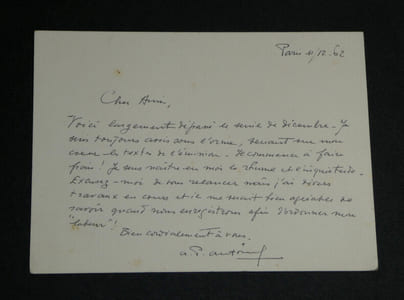 Paris 11/12.62
Cher Ami,
Voici largement dépassé le seuil de décembre - Je
suis toujours assis sous l'orme, tenant sur mon
coeur les textes de l'émission - Je commence à faire
frais ! Je sens naître en moi le rhume et l'inquiétude -
Excusez-moi de vous relancer mais j'ai divers
travaux en cours et il me serait bien agréable de
savoir quand nous enregistrons afin d'ordonner mon
"labeur" !
Bien cordialement à vous.
a. P. antoine